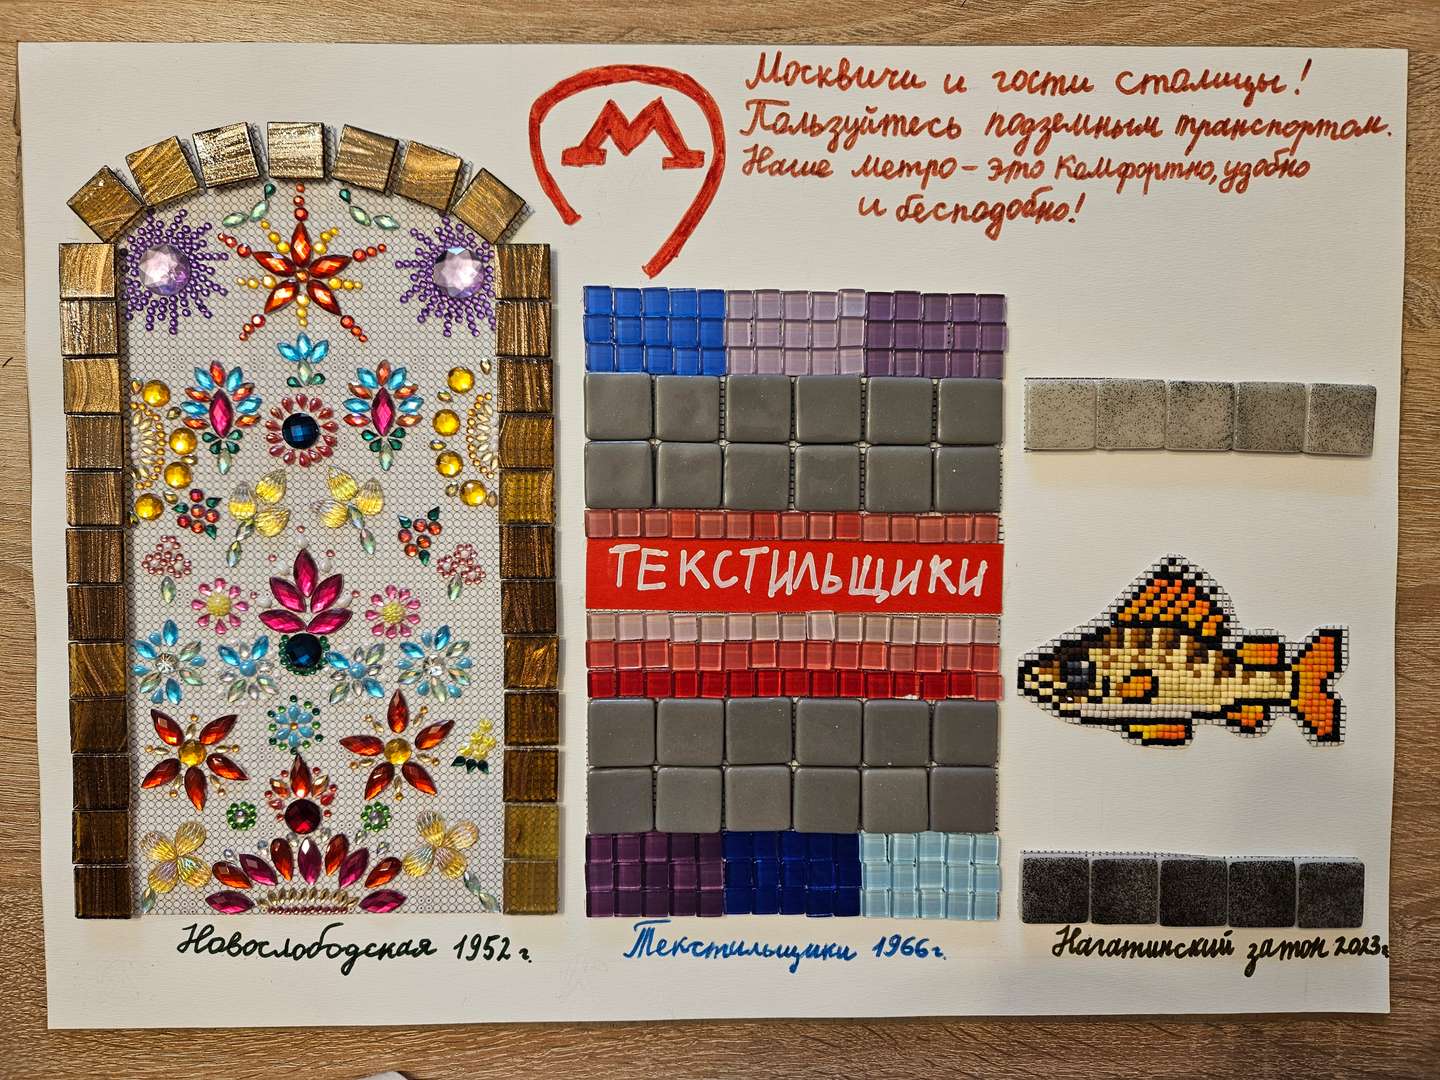 М
Москвичи и гости столицы!
Пользуйтесь подземным транспортом.
Наше метро - это комфортно, удобно
и бесподобно!
ТЕКСТИЛЬЩИКИ
Новослободская 1952 г.
Текстильщики 1966 г.
Нагатинский затон 2023 г.